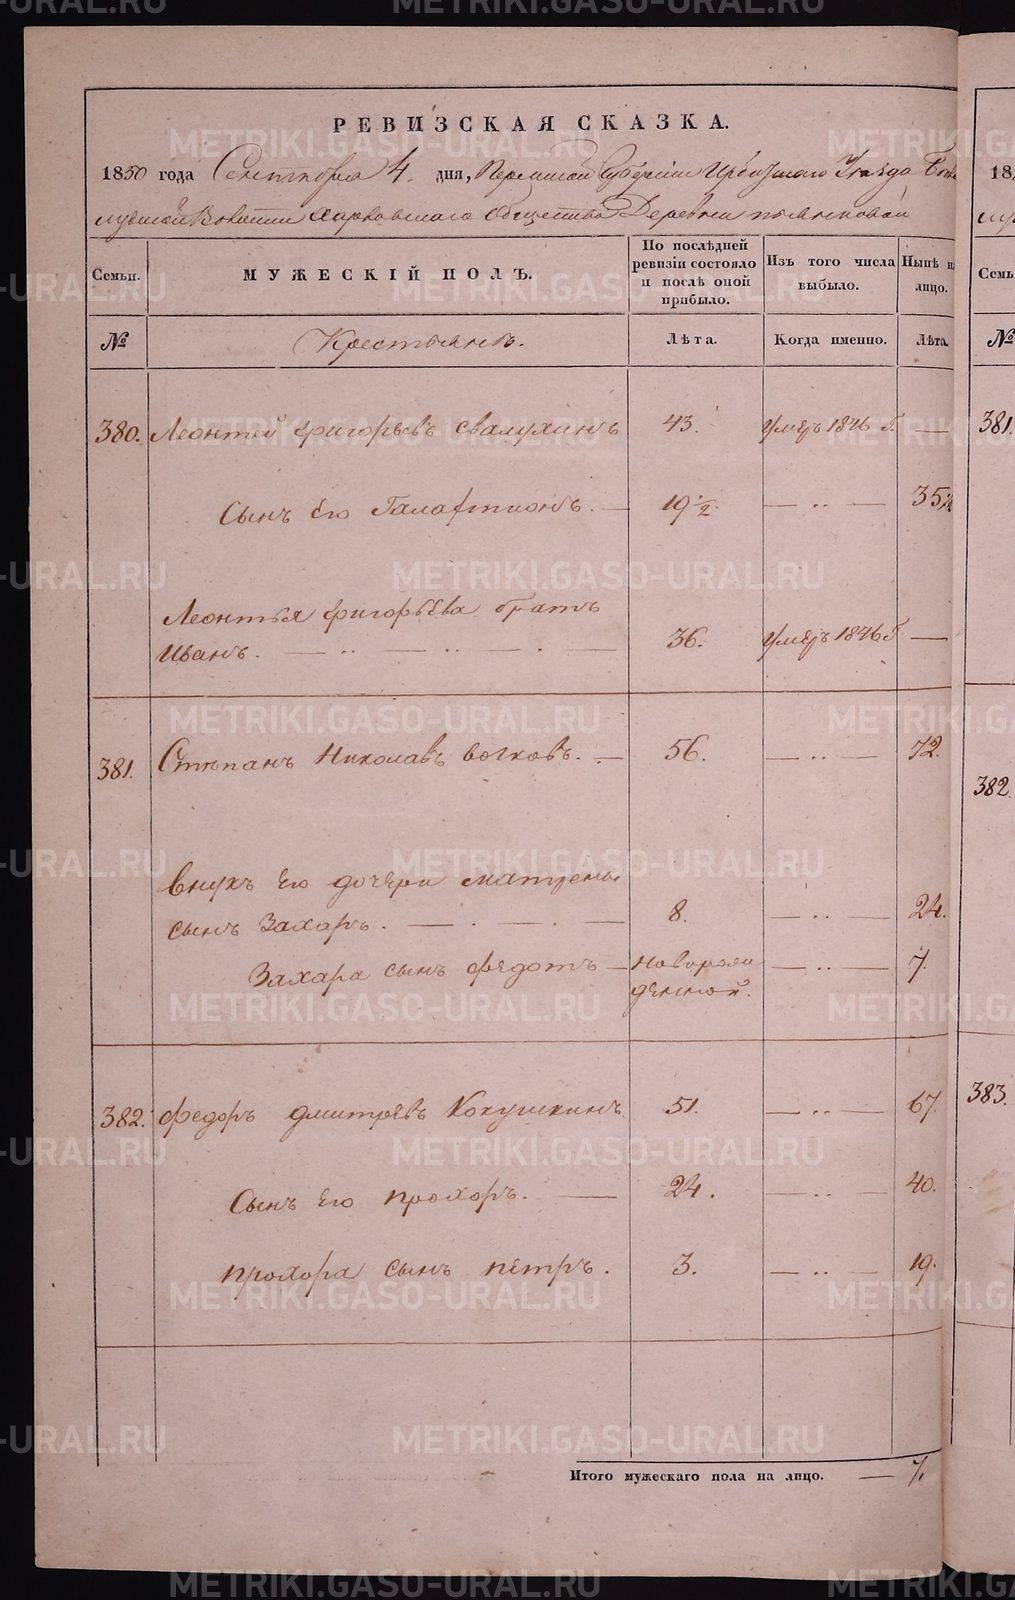 РЕВИЗСКАЯ СКАЗКА.
1850 года Сентября 4. дня, Пермской Губернии Ирбитскаго Уезда
Волости Харловскаго Общества Деревни
Семьи. МУЖЕСКІЙ ПОЛЪ. По послѣдней ревизіи состояло и послѣ оной прибыло. Изъ того числа выбыло. Нынѣ на лицо.
№ Крестьянъ. Лѣта. Когда именно. Лѣта.
380. Леонтей Григорьевъ Свалухинъ 43. Умеръ 1846 г. —
Сынъ Его Галафтионъ. — 19 1/2. — .. — 35 1/2
Леонтья Григорьева братъ
Иванъ. — .. — .. — . — 36. Умеръ 1846 г —
381. Степанъ Николаевъ Волковъ. — 56. — .. — 72.
Внукъ Его дочери Матрены
сынъ Захаръ. — . — . — 8. — .. — 24.
Захара сынъ Федотъ — новорож
денной. — .. — 7.
382. Федоръ Дмитревъ Кокушкинъ 51. — .. — 67.
Сынъ Его Прохоръ. — 24. — .. — 40.
Прохора сынъ Петръ. 3. — .. — 19.
Итого мужескаго пола на лицо. — 7.
18
Семь
№
381.
382.
383.
METRIKI.GASO-URAL.RU